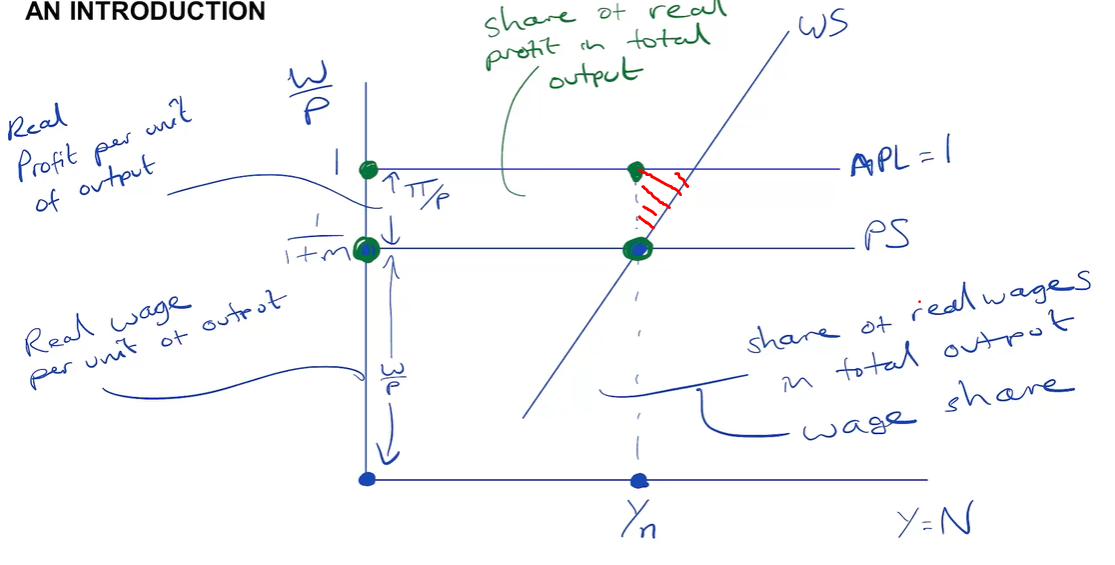 AN INTRODUCTION
share of real
profit in total
output
WS
W/P
Real
Profit per unit
of output
1
π/P
APL = 1
1/1+m
PS
Real wage
per unit of output
W/P
share of real wages
in total output
wage share
Yn
Y=N